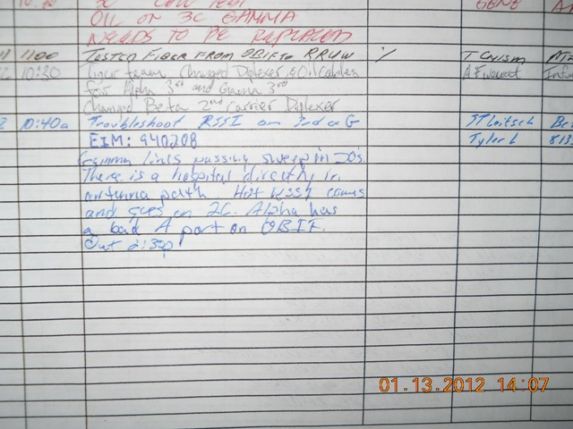 OIL ON 3C GAMMA
NEEDS TO BE REPLACED
1100 TESTED FIBER FROM OBIF TO RRUW
10:30 Tiger team, Changed Diplexer & Oil Cables
for Alpha 3rd and Gamma 3rd
Changed Beta 2nd Carrier Diplexer
10:40a Troubleshoot RSSI on G
EIM: 940208 Tyler L
Gamma lines passing sweep in 20's
There is a hospital directly in
antenna path. Hot RSSI comes
and goes on 2G. Alpha has
a bad A port on OBIF.
Out 2:30p
01.13.2012 14:07